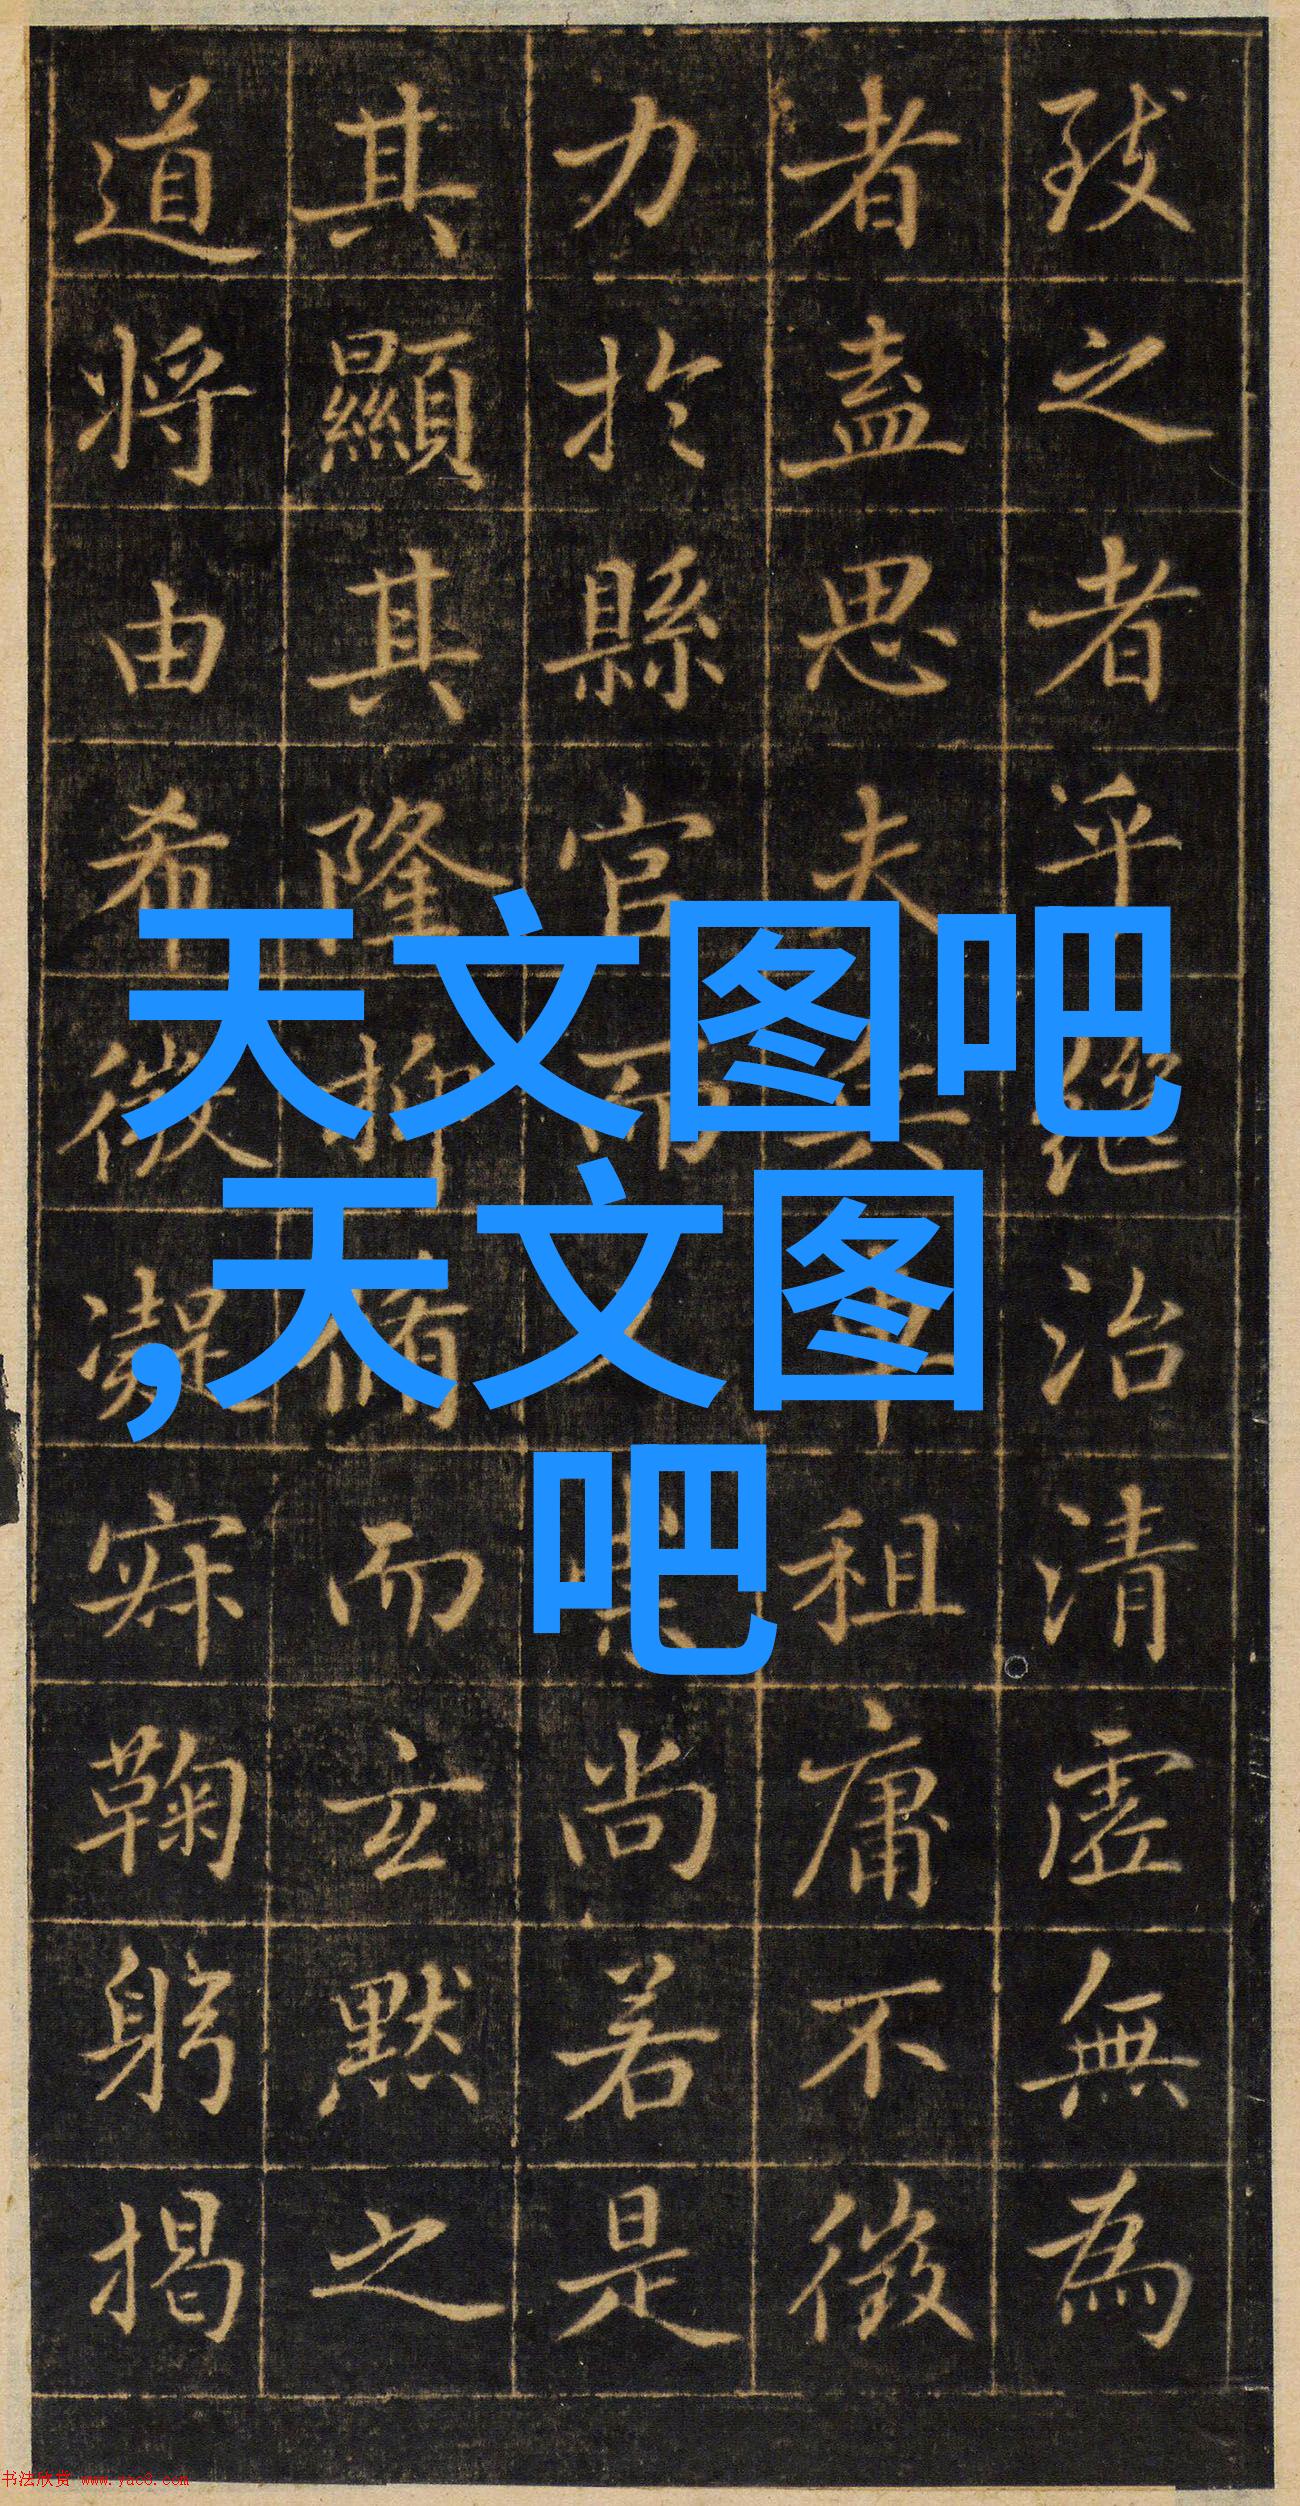 致之者乎继治清虚無為
者盖思夫租庸不徵
力於縣官而尚若是
其顯其隆抑脩而玄默之
道將由希微凝寂鞠躬揭
天文图吧
,天文图
吧
书法欣赏 www.yac8.com